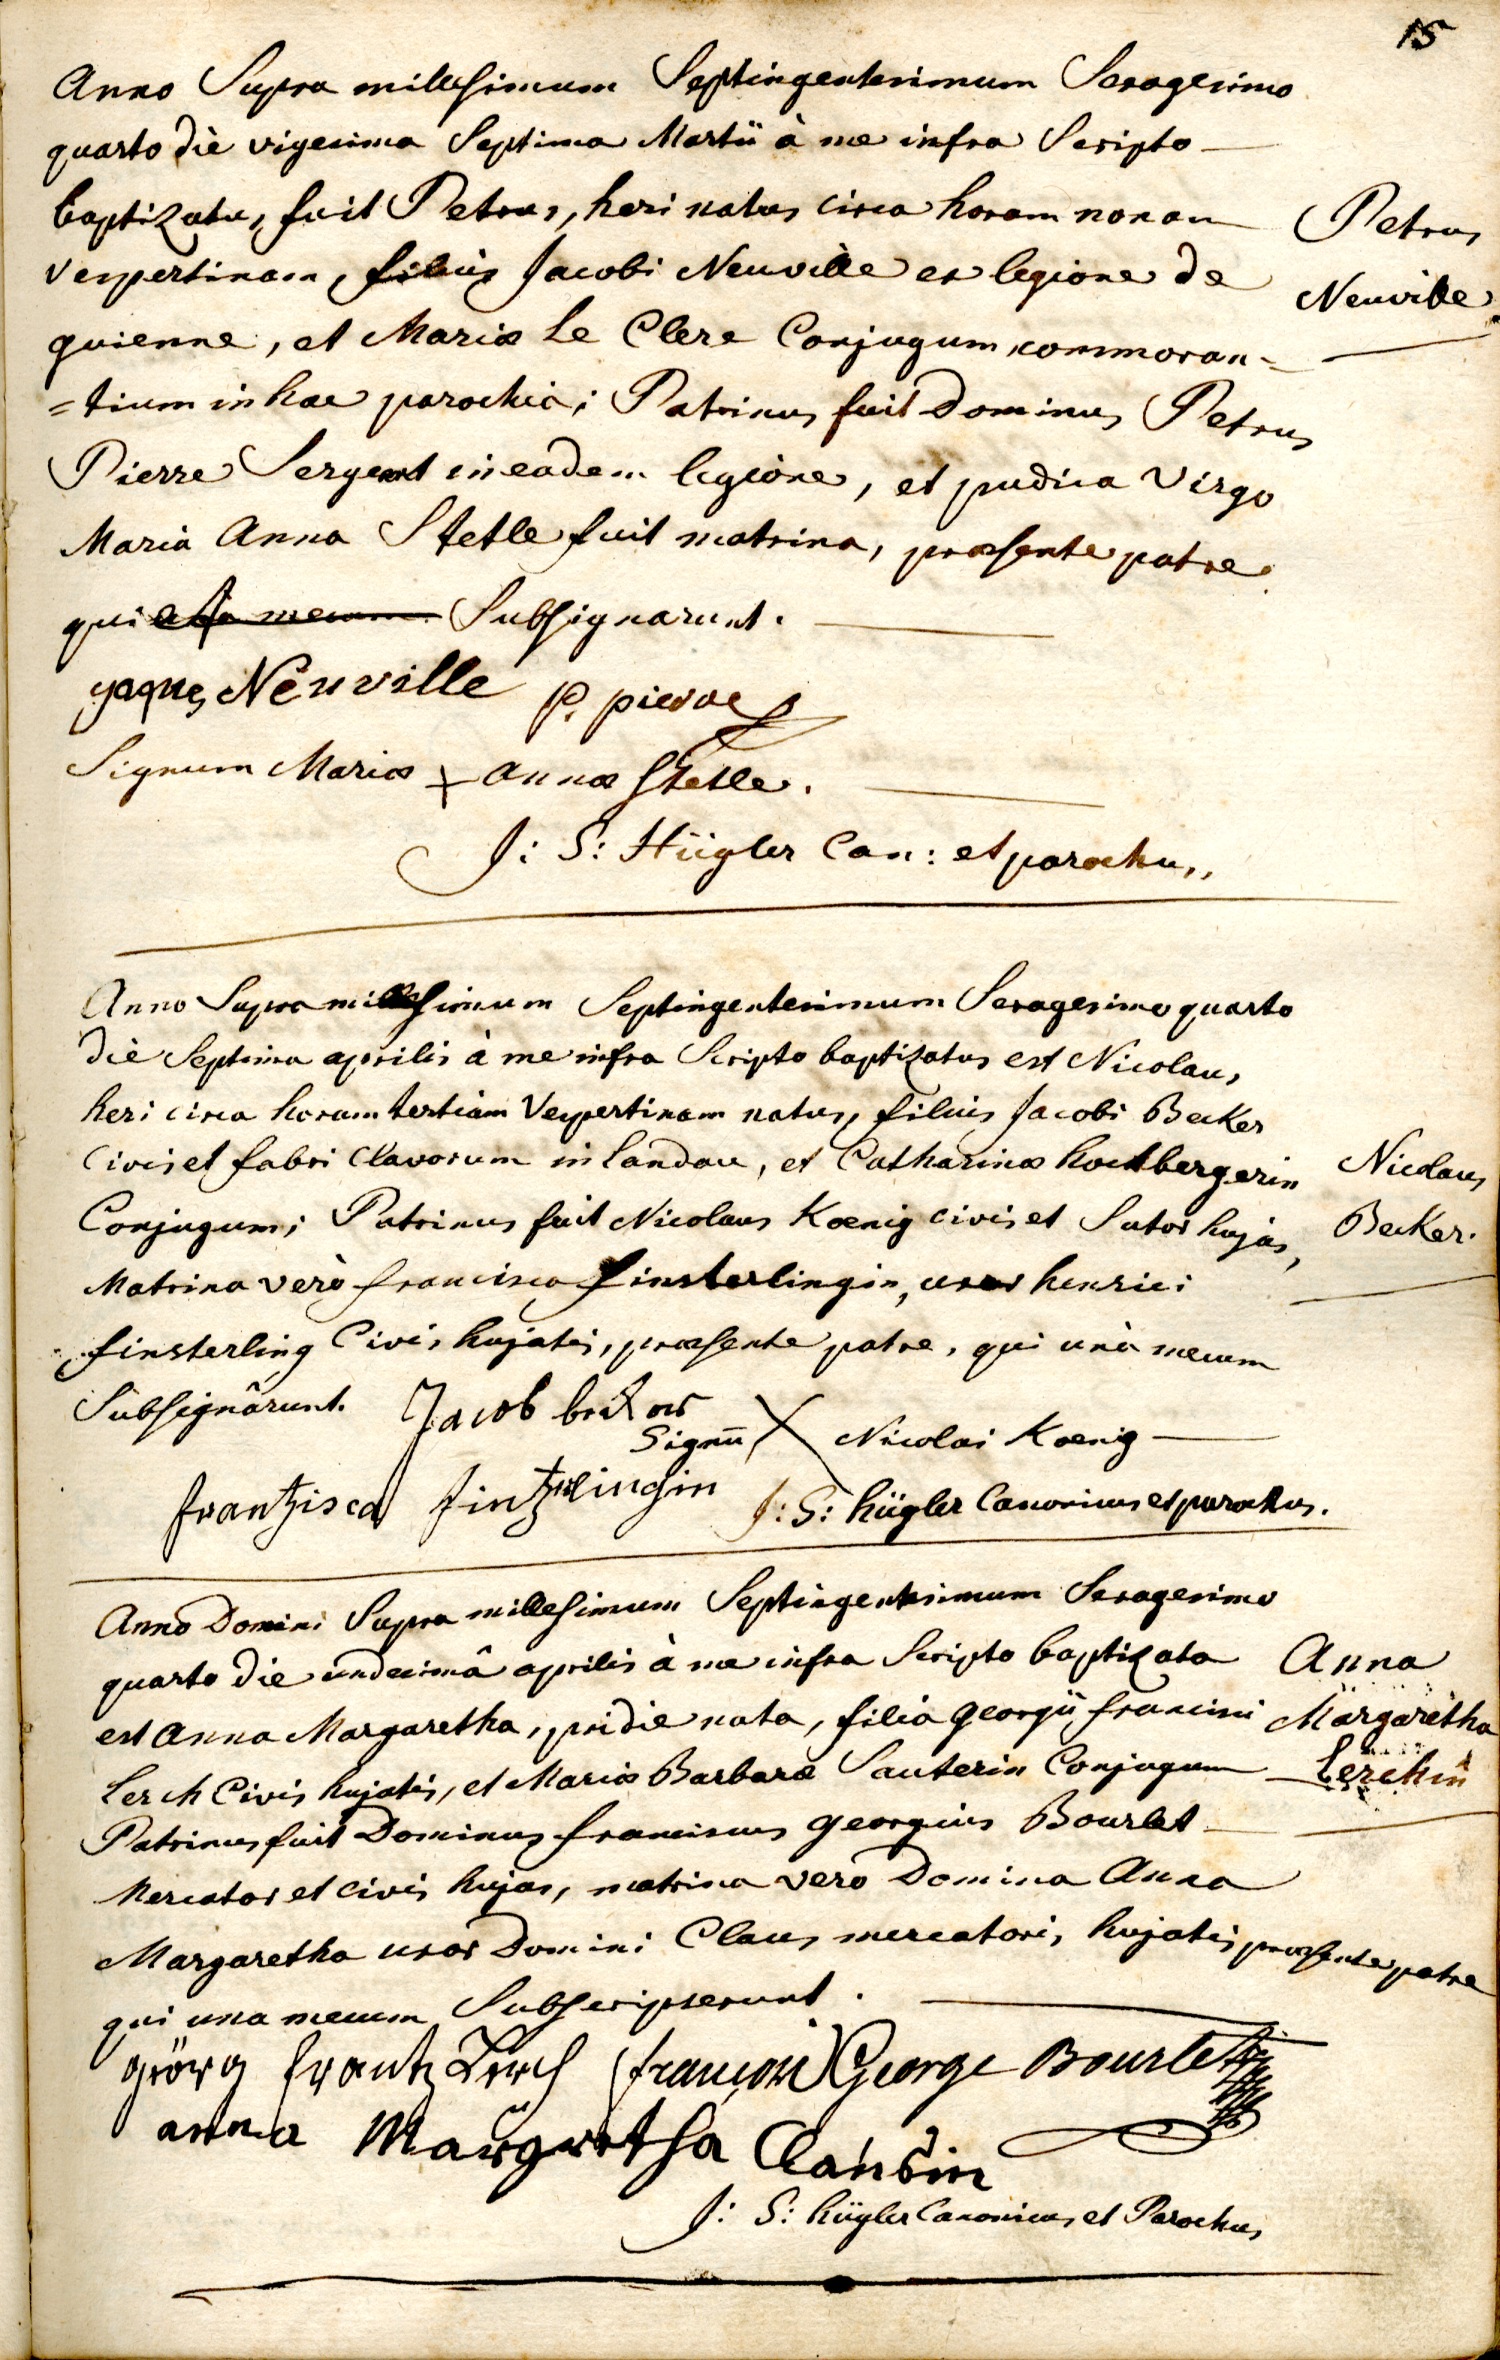 15
Anno Supra millesimum Septingentesimum Sexagesimo
quarto die vigesima Septima Martii à me infra Scripto
baptizatus fuit Petrus, heri natus circa horam nonam
Vespertinam, filius Jacobi Neuville ex legione de
guienne, et Mariæ Le Clere Conjugum commoran-
=tium in hac parochia; Patrinus fuit Dominus Petrus
Pierre Sergent in eadem legione, et pudica Virgo
Maria Anna Stetle fuit matrina, præsente patre
qui Subsignarunt.
Petrus
Neuville
yaques Neuville P. pierre
Signum Mariæ + Annæ Stetle.
J: S: Hügler Can: et parochus
Anno Supra millesimum Septingentesimum Sexagesimo quarto
die Septima aprilis à me infra Scripto baptizatus est Nicolaus
heri circa horam tertiam Vespertinam natus, filius Jacobi Becker
Civis et fabri Clavorum in landau, et Catharinæ hochbergerin
Conjugum; Patrinus fuit Nicolaus Koenig civis et Sutor hujas,
Matrina verò francisca finsterlingin, uxor henrici
finsterling Civis hujatis, præsente patre, qui unà mecum
Subsignârunt.
Nicolaus
Becker.
Jacob
Signū X Nicolai Koenig
frantzisca
J: S: hügler Canonicus et parochus.
Anno Domini Supra millesimum Septingentesimum Sexagesimo
quarto die undecimâ aprilis à me infra Scripto baptizata
est Anna Margaretha, pridie nata, filia georgii francisci
Lerch Civis hujatis, et Mariæ Barbaræ Sauterin Conjugum
Patrinus fuit Dominus franciscus georgius Bourlet
Mercator et civis hujas, matrina vero Domina Anna
Margaretha uxor Domini Claus mercatoris hujatis præsente patre
qui una mecum Subscripserunt.
Anna
Margaretha
Lerchin
görg frantz Lerch françois George Bourlet
anna Margretha Clausin
J: S: hügler Canonicus et Parochus